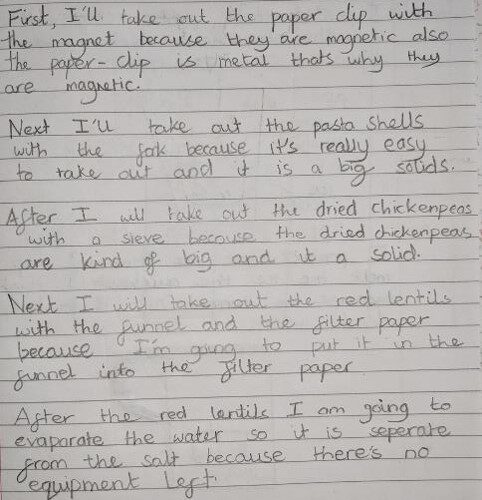 First, I'll take out the paper clip with
the magnet because they are magnetic also
the paper-clip is metal thats why they
are magnetic.
Next I'll take out the pasta shells
with the fork because it's really easy
to take out and it is a big solids.
After I will take out the dried chickenpeas
with a sieve because the dried chickenpeas
are kind of big and it a solid.
Next I will take out the red lentils
with the funnel and the filter paper
because I'm going to put it in the
funnel into the filter paper
After the red lentils I am going to
evaporate the water so it is seperate
from the salt because there's no
equipment left.